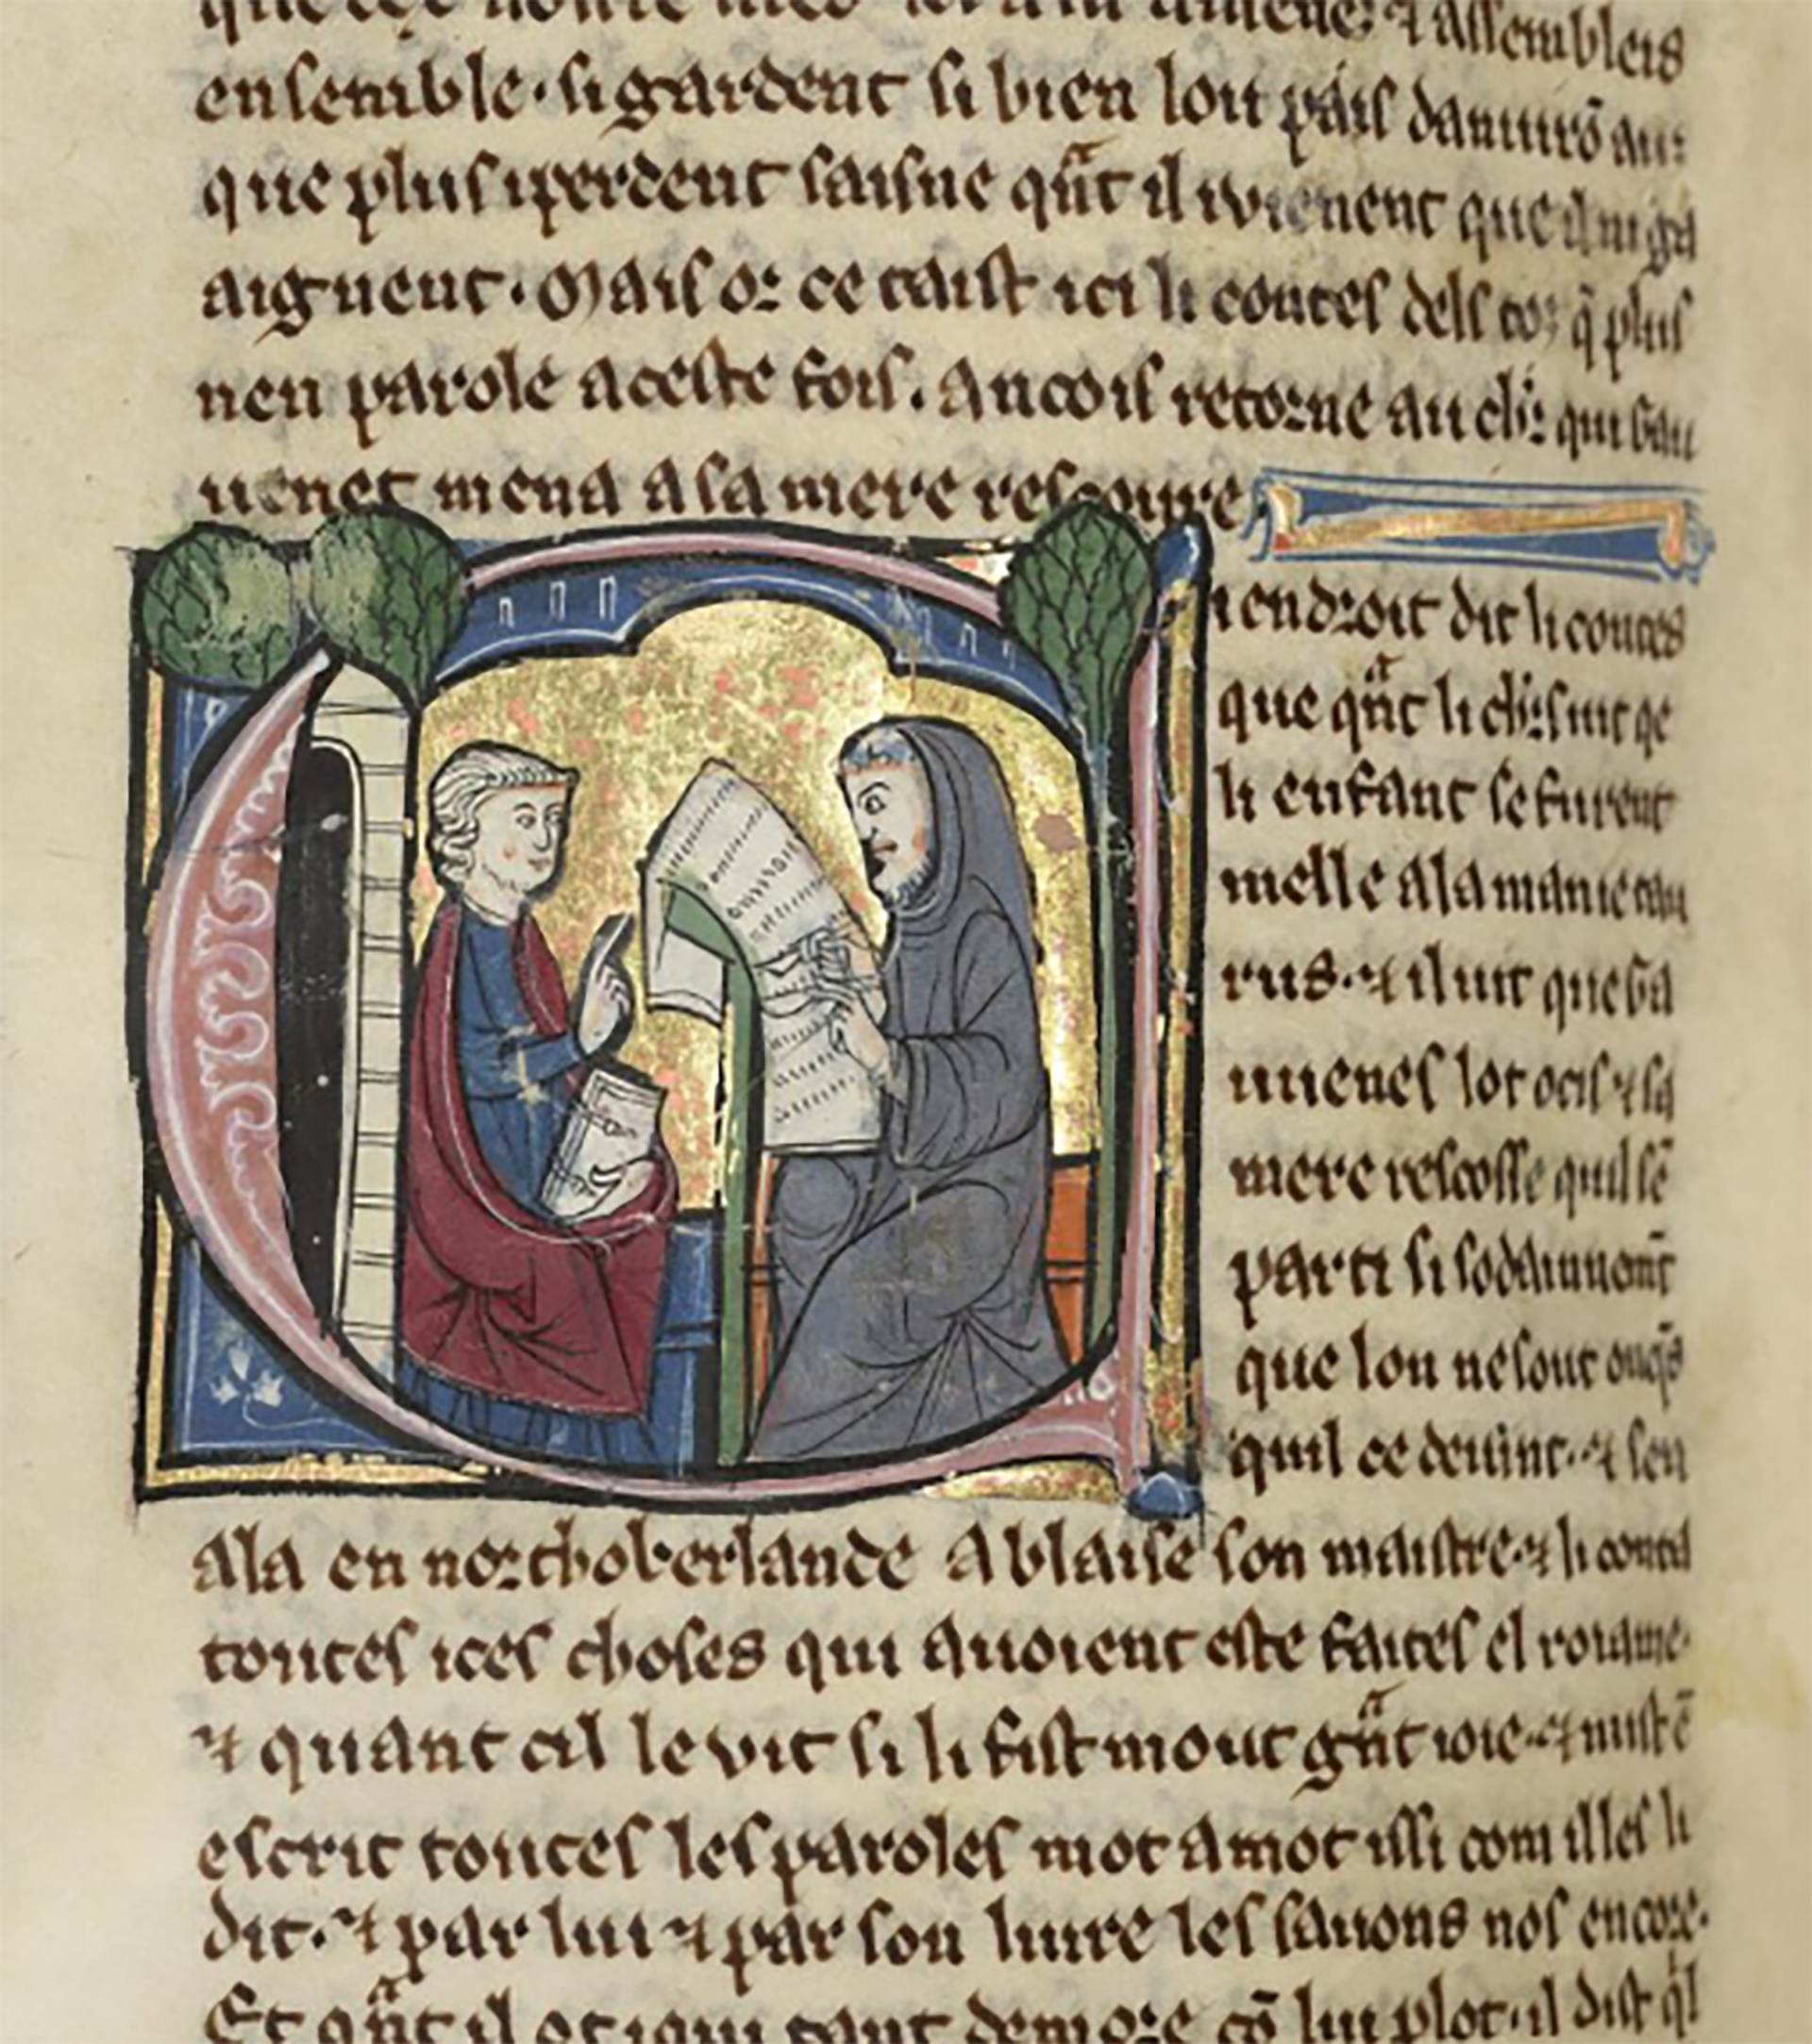 ensemble · si gardent si bien lor païs damiurō au⁊
que plus iperdent saisne qͣnt il ivienent que il ni ga
aignent · Mais or ce taist ici li contes dels toz q̄ plus
nen parole aceste fois . Ancois retorne au chꝛ qui Gau
uenet mena a sa mere rescoure
iendroit dit li contes
que qͣnt li chꝛs uit qe
li enfant se furent
melle ala manie
rus · ⁊ il uit que Ga
uuenes lot ocis ⁊ sa
mere rescosse quil sē
parti si sodainnemt̄
que lon ne sout onq̄s
quil ce devint · ⁊ sen
ala en northoberlande A blaise son maistre · ⁊ li conta
toutes ices choses qui auoient este faites el roiame ·
⁊ quant cil le vit si li fist mout gͣnt ioie · ⁊ mist ē
escrit toutes les paroles mot a mot issi com illes li
dit · ⁊ par lui ⁊ par son liure les sauons nos encore ·
Et qͣnt il ot iqui tant demore cō lui plot · il dist ql